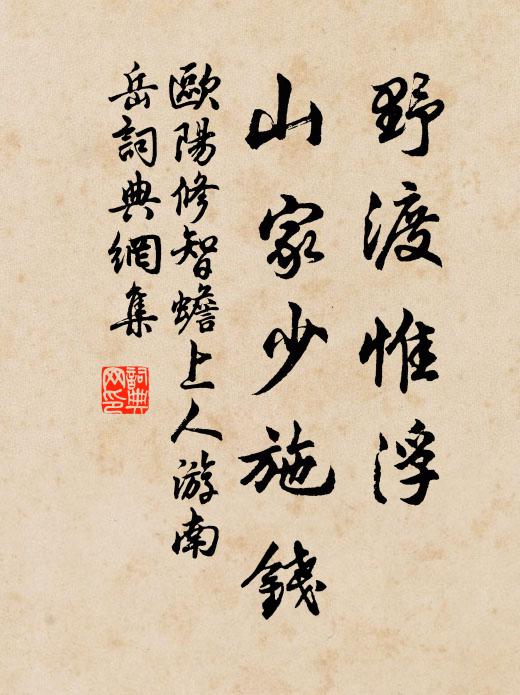 野渡惟浮
山家少施錢
歐陽修智蟾上人游南
岳詞典網集
詞典
网印